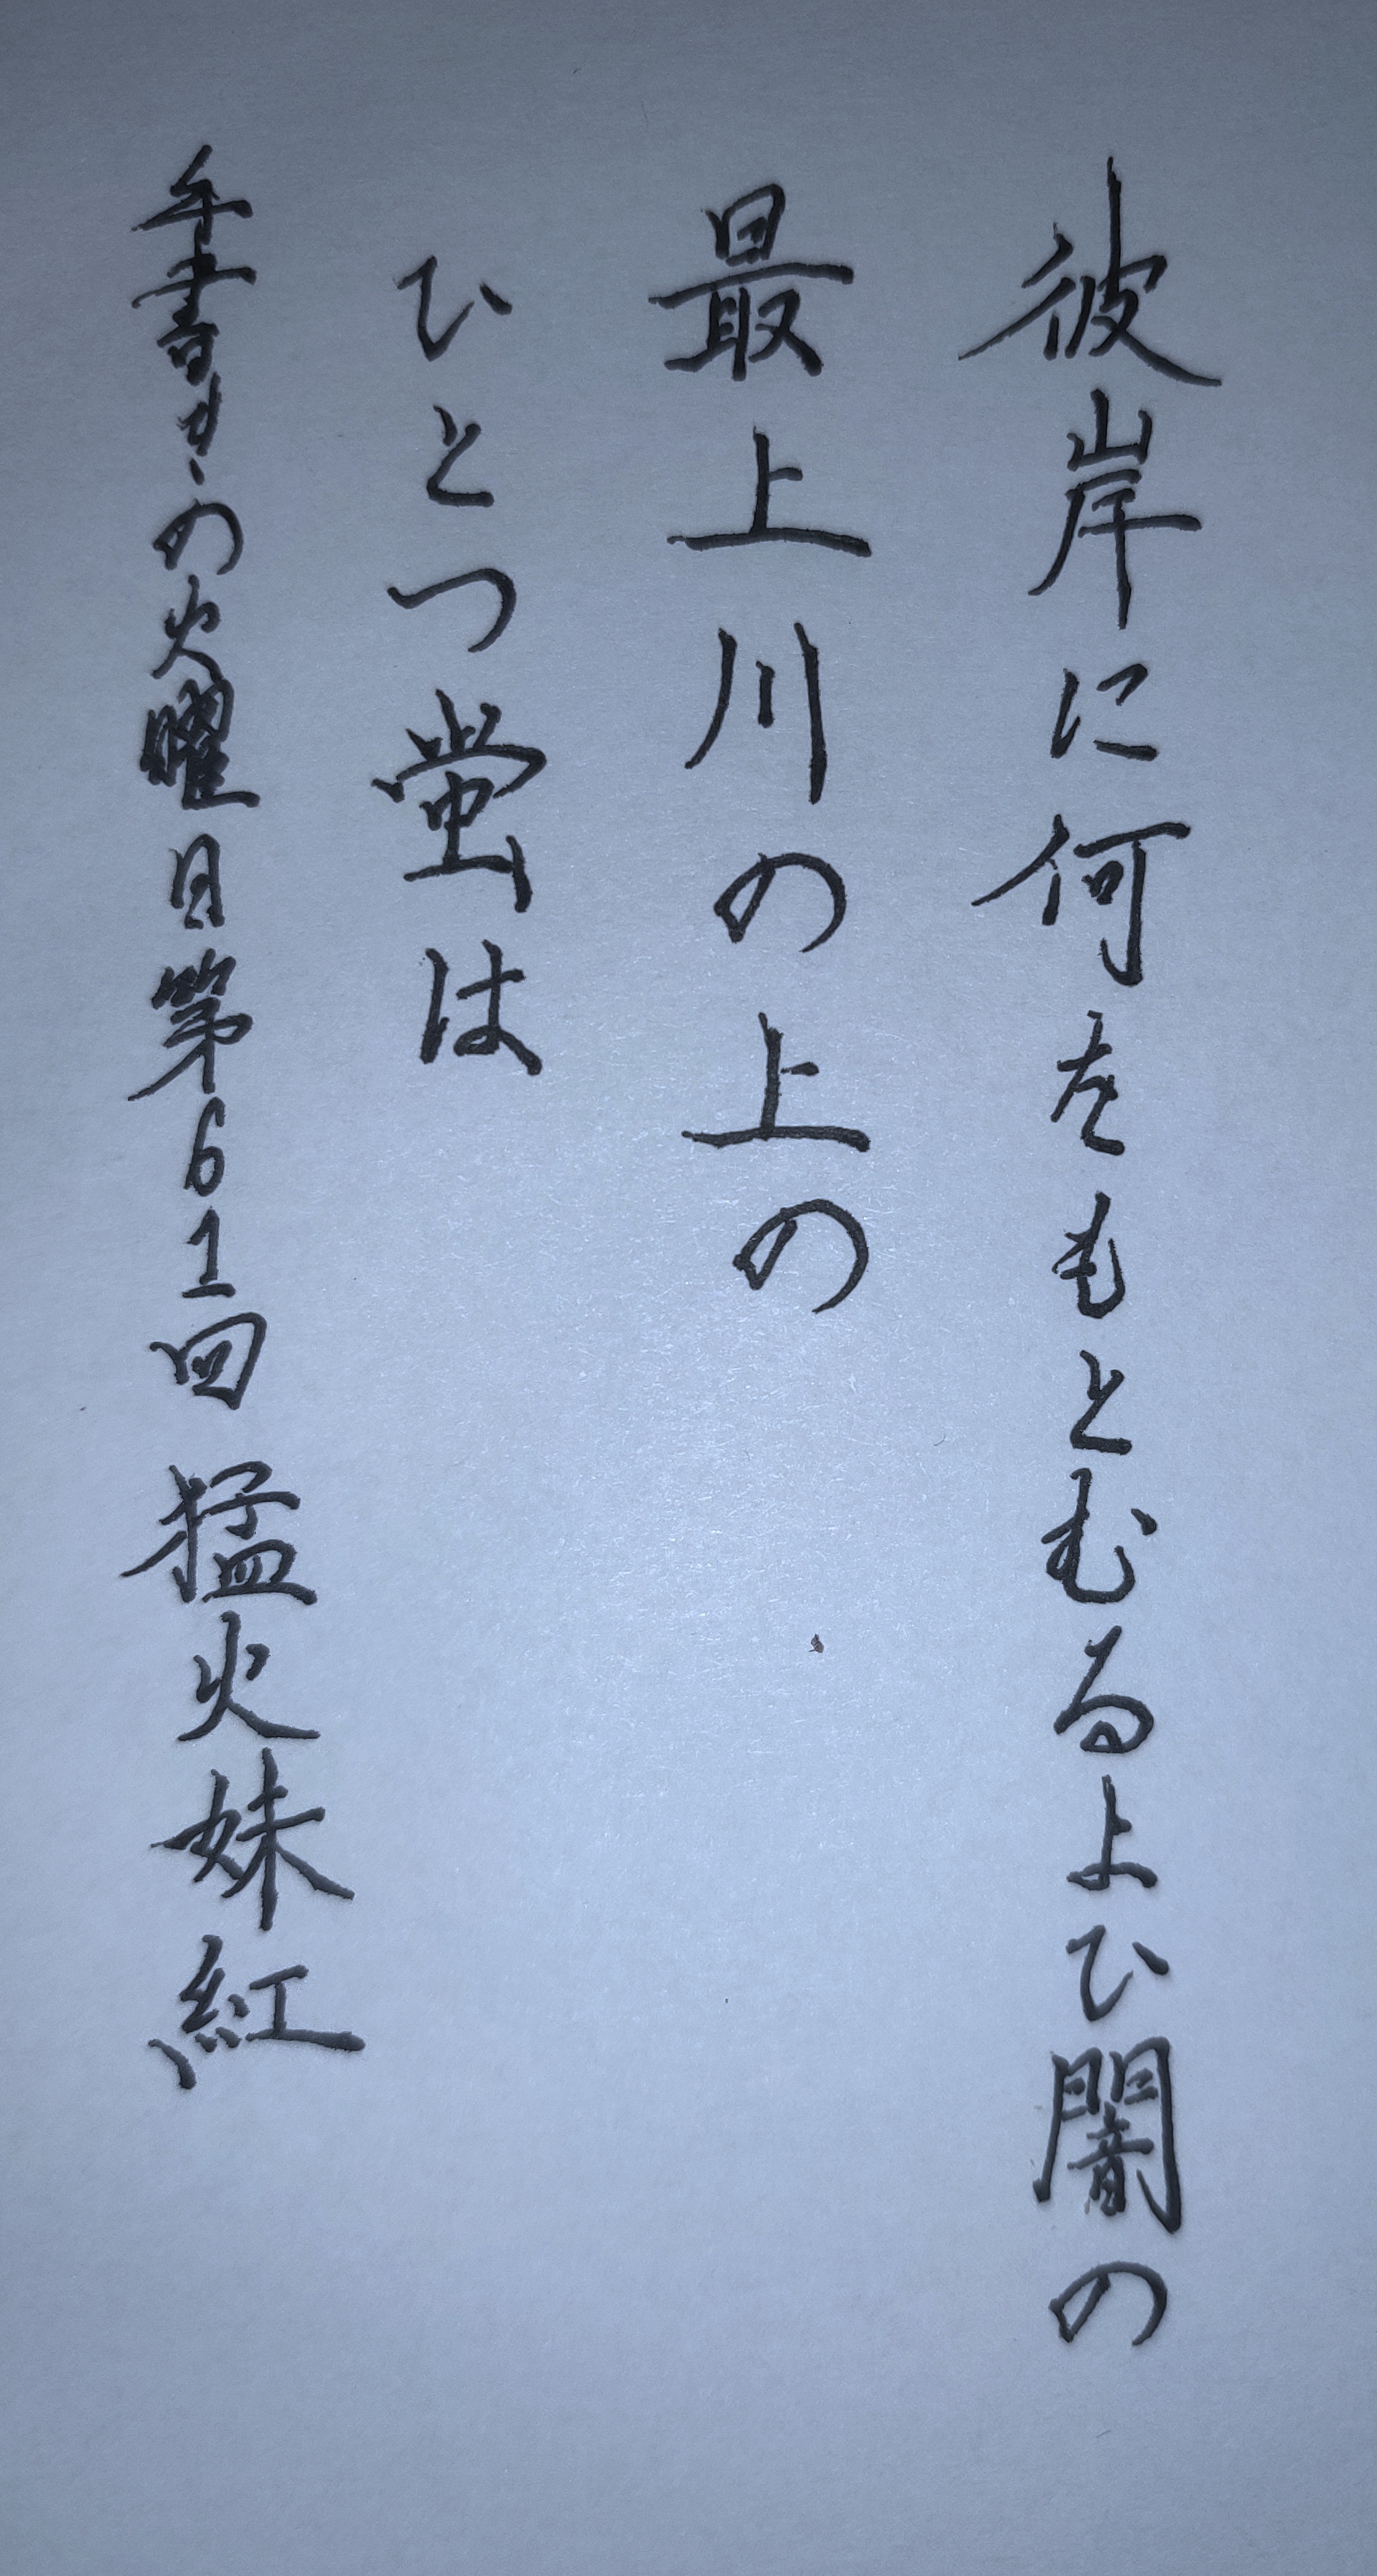 彼岸に何をもとむるよひ闇の
最上川の上の
ひとつ蛍は
手書きの火曜日第61回 猛火妹紅